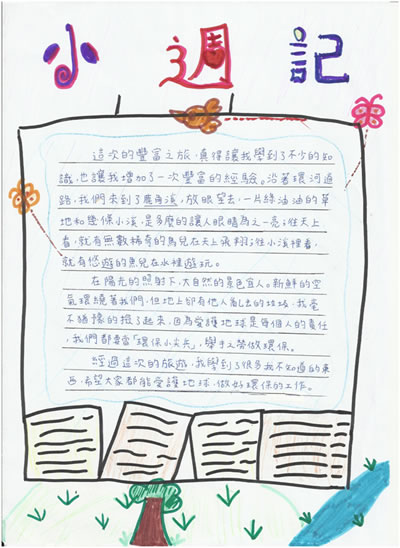 小週記
這次的豐富之旅,真得讓我學到了不少的知
識,也讓我增加了一次豐富的經驗。沿著環河道
路,我們來到了鹿角溪,放眼望去,一片綠油油的草
地和幾條小溪,是多麼的讓人眼睛為之一亮;往天上
看,就有無數稀奇的鳥兒在天上飛翔;往小溪裡看,
就有悠遊的魚兒在水裡遊玩。
在陽光的照射下,大自然的景色宜人。新鮮的空
氣環繞著我們,但地上卻有他人亂丟的垃圾,我毫
不猶豫的撿了起來,因為愛護地球是每個人的責任
,我們都要當「環保小尖兵」,舉手之勞做環保。
經過這次的旅遊,我學到了很多我不知道的東
西,希望大家都能愛護地球,做好環保的工作。